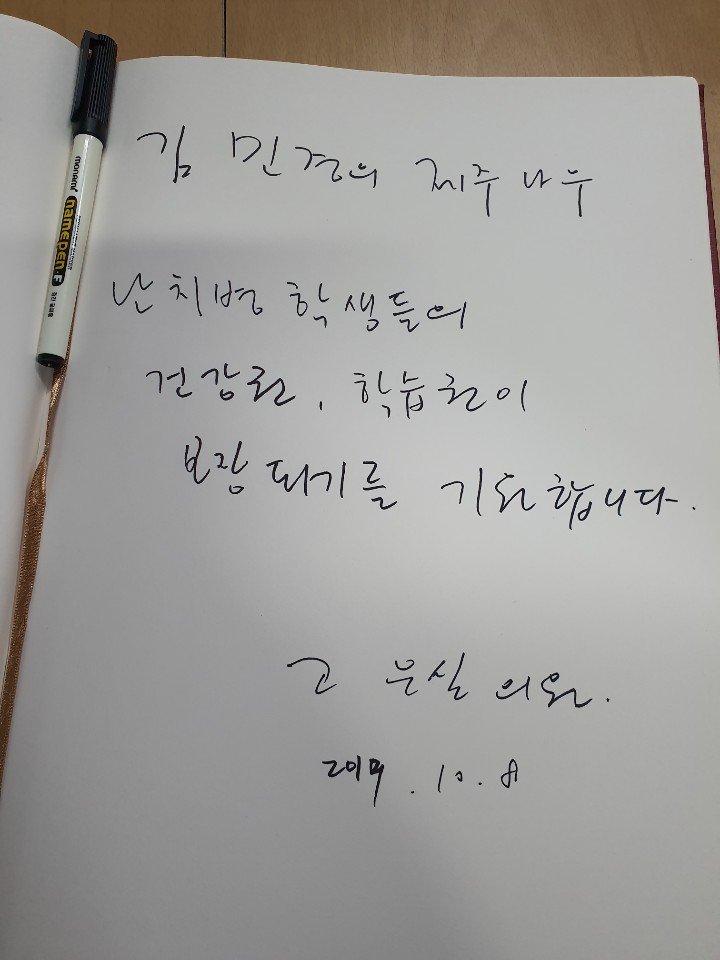 김 민경의 제주 나우
난치병 학생들의
건강권, 학습권이
보장되기를 기원합니다.
고 은실 의원.
2019. 10. 8
monami
namepen F